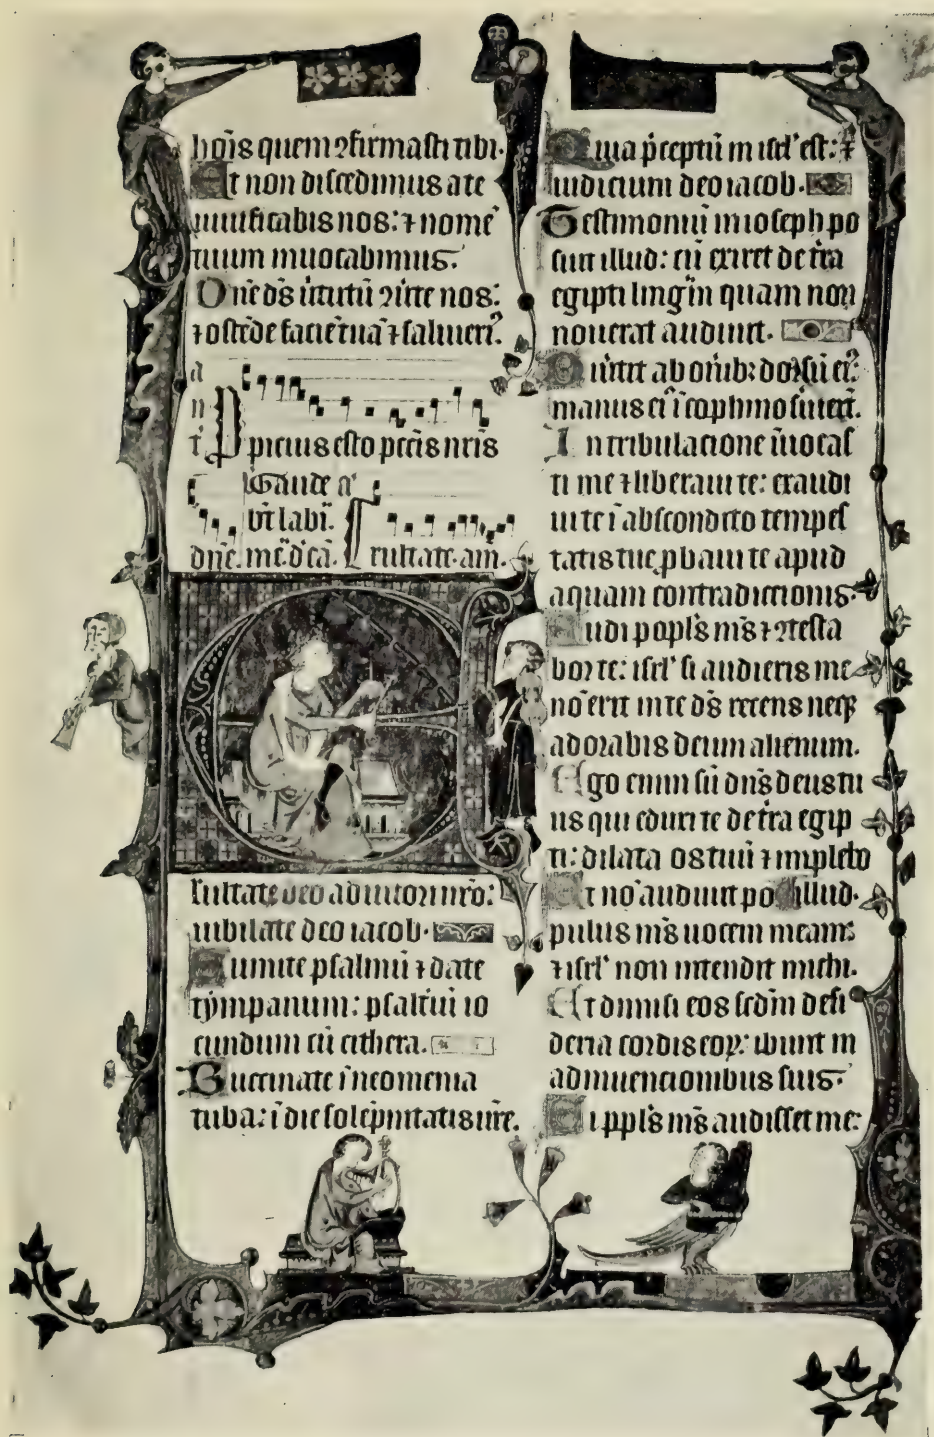 hoīs quem ꝯfirmasti tibi.
Et non discedimus a te
uiuificabis nos: ⁊ nomē
tuum inuocabimus.
Dn̄e ds̄ uirtutū ꝯuerte nos:
⁊ ostēde faciē tuā ⁊ salui eriꝰ.
an̄
Ppicius esto pctīs nr̄is
dn̄e.
Exultate. am̄.
Exultate deo adiutori nr̄o:
iubilate deo iacob.
Sumite psalmū ⁊ date
tympanum: psalt'iū io
cundum cū cithara.
Buccinate ī neomenia
tuba: ī die solēpnitatis ur̄e.
Quia p̄ceptū in isrl' est: ⁊
iudicium deo iacob.
Testimoniū in ioseph po
suit illud: cū exiret de t̄ra
egipti linguā quam non
nouerat audiuit.
Diu'tit ab onib; dorsū eiꝰ:
manus eiꝰ ī cophino s'uier̄t.
In tribulatione īuocas
ti me ⁊ liberaui te: exaudi
ui te ī abscondito tempes
tatis tue ꝓbaui te apud
aquam contradictionis.
Audi popl's ms̄ ⁊ ꝯtesta
bor te: isrl' si audieris me
nō erit in te ds̄ recens neqꝫ
adorabis deum alienum.
Ego enim sū dn̄s deus tu
us qui eduxi te de t̄ra egip
ti: dilata os tuū ⁊ implebo
Et nō audiuit po illud.
pulus ms̄ uocem meam:
⁊ isrl' non intendit michi.
Et dimisi eos scdm̄ desi
deria cordis eoꝝ: ibunt in
adinuencionibus suis.
Si ppl's ms̄ audisset me: